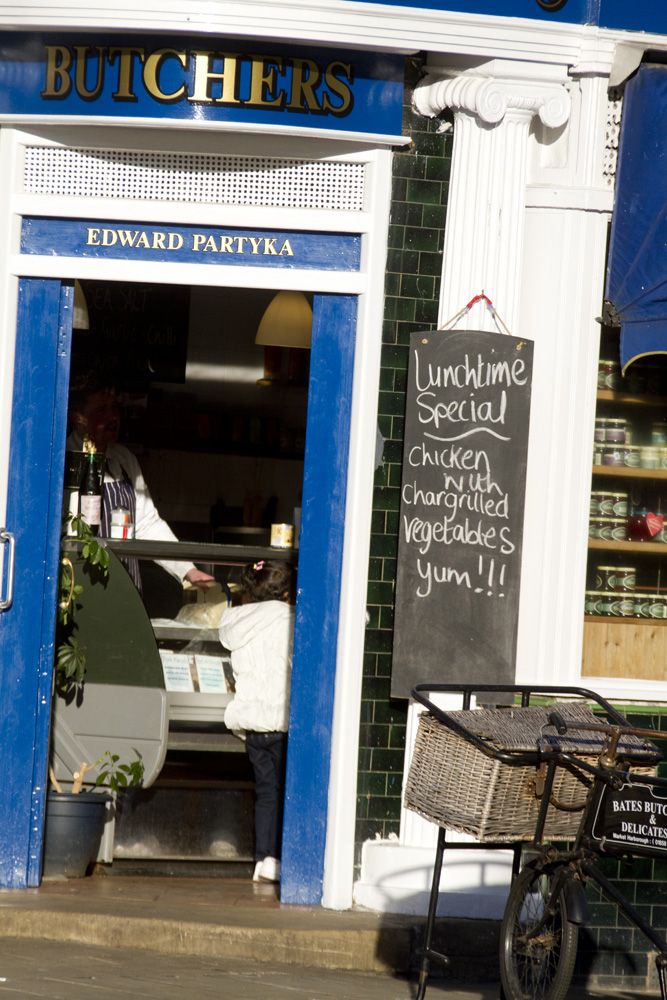 BUTCHERS
EDWARD PARTYKA
SEA SALT
Lunchtime
Special
chicken
with
chargrilled
vegetables
yum!!!
BATES BUTC
&
DELICATES
Market Harborough